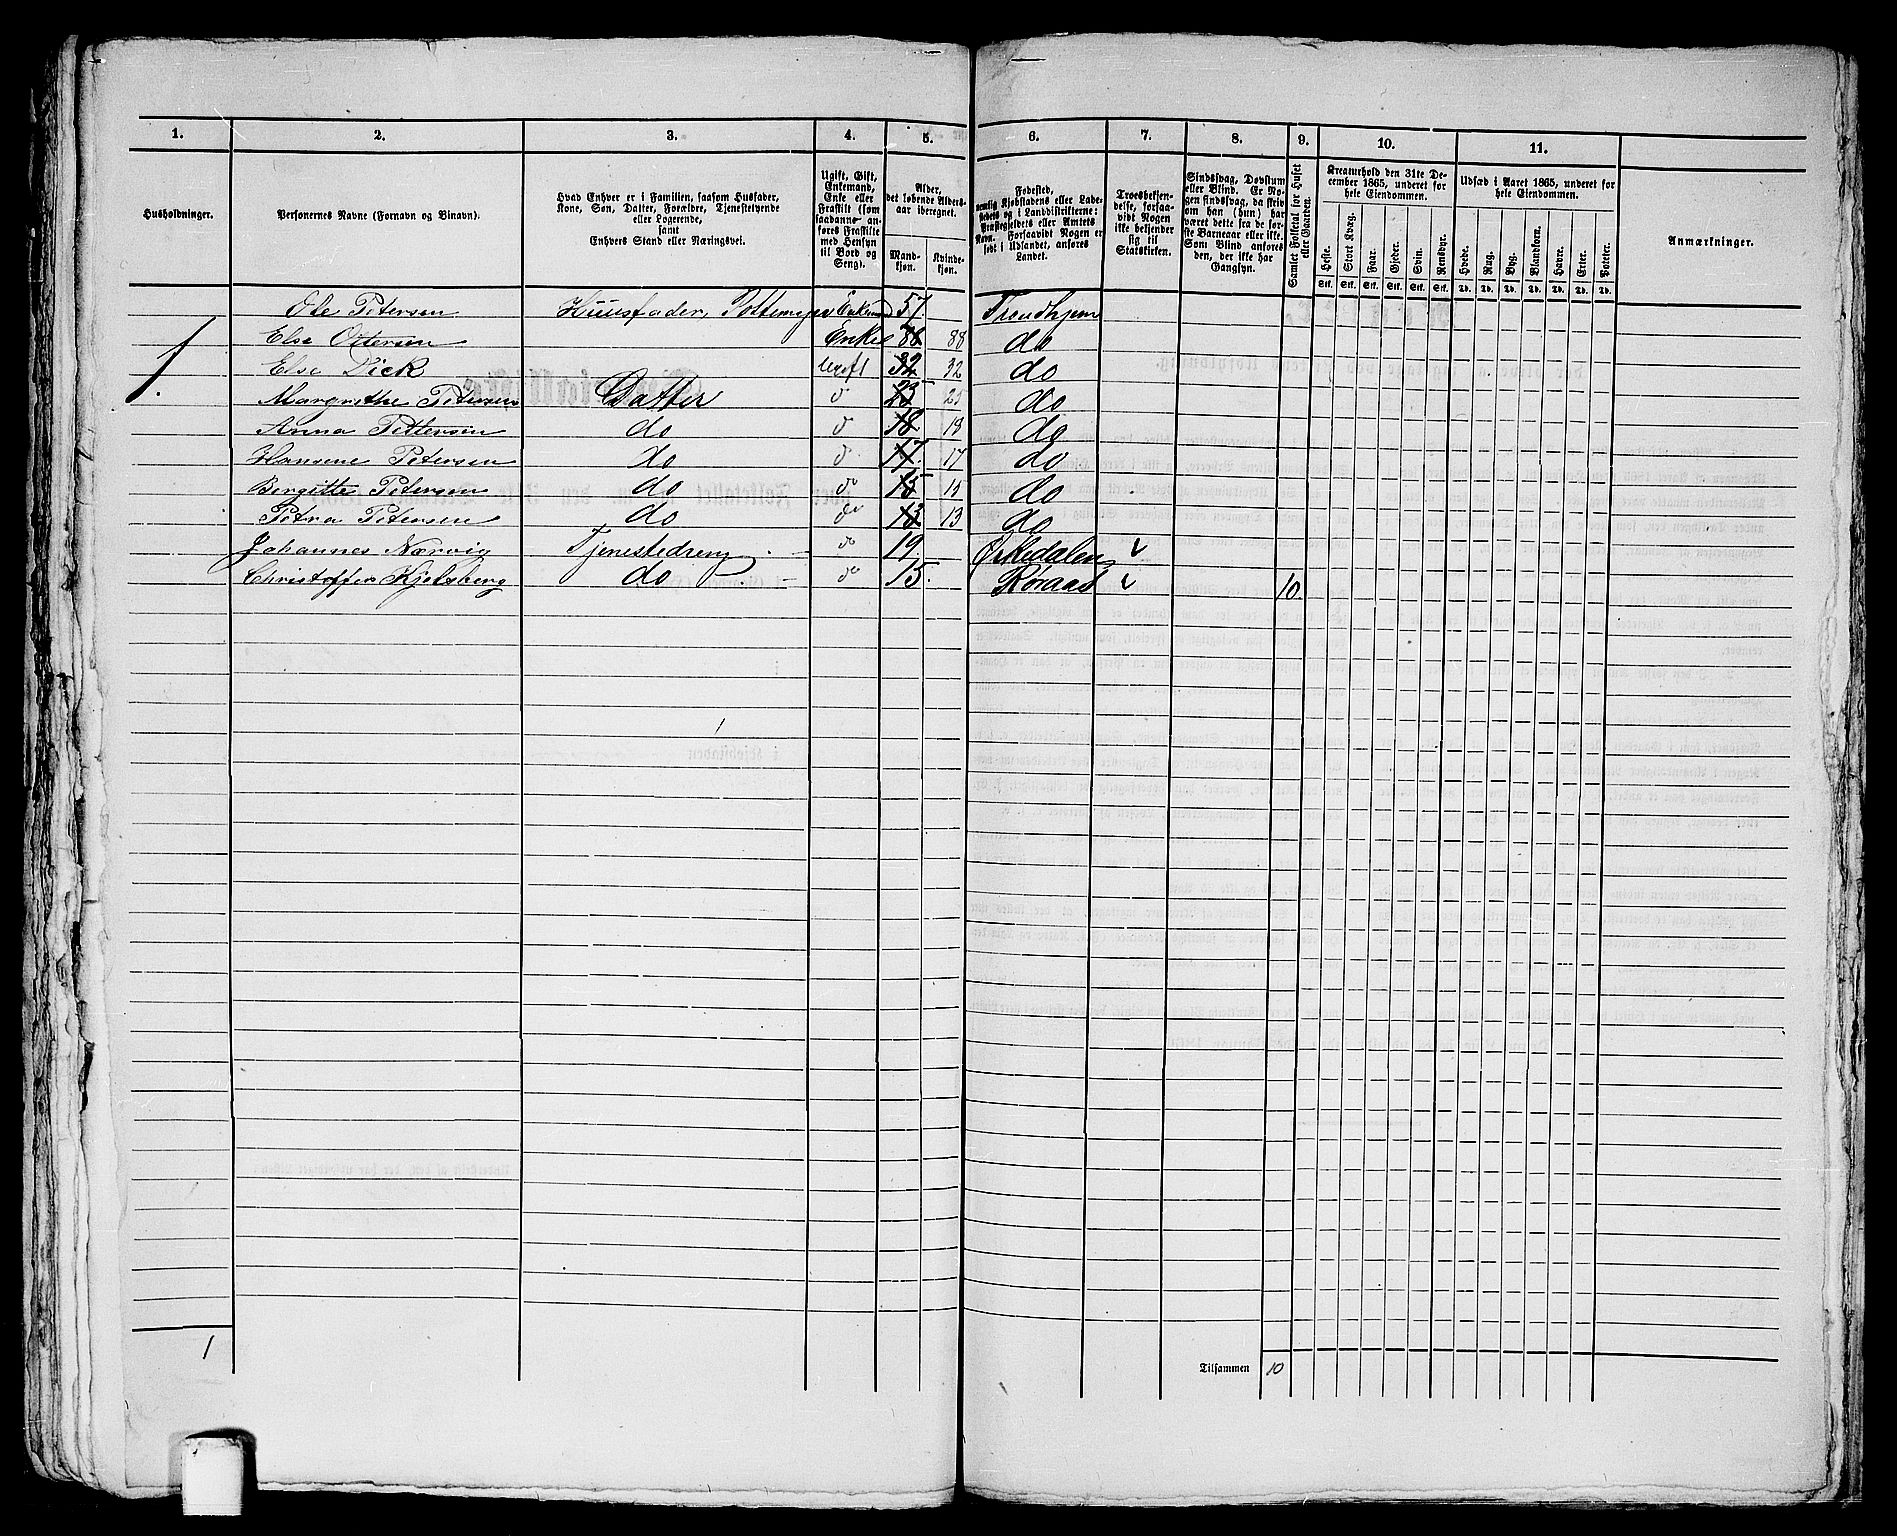 1. 2. 3. 4. 5. 6. 7. 8. 9. 10. 11.
Husholdninger.
Personernes Navne (Fornavn og Binavn).
Hvad Enhver er i Familien, saasom Husfader,
Kone, Søn, Datter, Forældre, Tjenestetyende
eller Logerende,
samt
Enhvers Stand eller Næringsvei.
Ugift, Gift,
Enkemand,
Enke eller
Fraskilt (som
saadanne an-
føres Fraskilte
med Hensyn
til Bord og
Seng).
Alder,
det løbende Alders-
aar iberegnet.
Mand-
kjøn.
Kvinde-
kjøn.
Fødested,
nemlig Kjøbstadens eller Lade-
stedets og i Landdistrikterne:
Præstegjeldets eller Amtets
Navn. Forsaavidt Nogen er
født i Udlandet, anføres
Landet.
Troesbekjen-
delse, forsaa-
vidt Nogen
ikke bekjender
sig til
Statskirken.
Sindssvag, Døvstum
eller Blind. Er No-
gen sindssvag, da skriv
om han (hun) har
været dette fra de før-
ste Barneaar eller ikke.
Som Blind anføres
den, der ikke har
Gangsyn.
Samlet Folketal for Huset
eller Gaarden.
Kreaturhold den 31te De-
cember 1865, underet for
hele Eiendommen.
Heste. Stort Kvæg. Faar. Gjeder. Svin. Rensdyr.
Stk. Stk. Stk. Stk. Stk. Stk.
Udsæd i Aaret 1865, underet for
hele Eiendommen.
Hvede. Rug. Byg. Blandkorn. Havre. Erter. Poteter.
Td. Td. Td. Td. Td. Td. Td.
Anmærkninger.
1. Ole Petersen Huusfader, Pottemager Enkemand 57. Trondhjem
Else Ottersen Enke 88 88 do
Else Dick ugift 32 32 do
Margrethe Petersen Datter do 23 23 do
Anna Pettersen do do 18 18 do
Hansene Petersen do do 17 17 do
Bergitte Petersen do do 15 15 do
Petra Petersen do do 13 13 do
Johannes Nærvig Tjenestedreng do 19. Ørkedalen
Christoffer Kjelsberg do do 15. Røraas 10.
1
Tilsammen 10